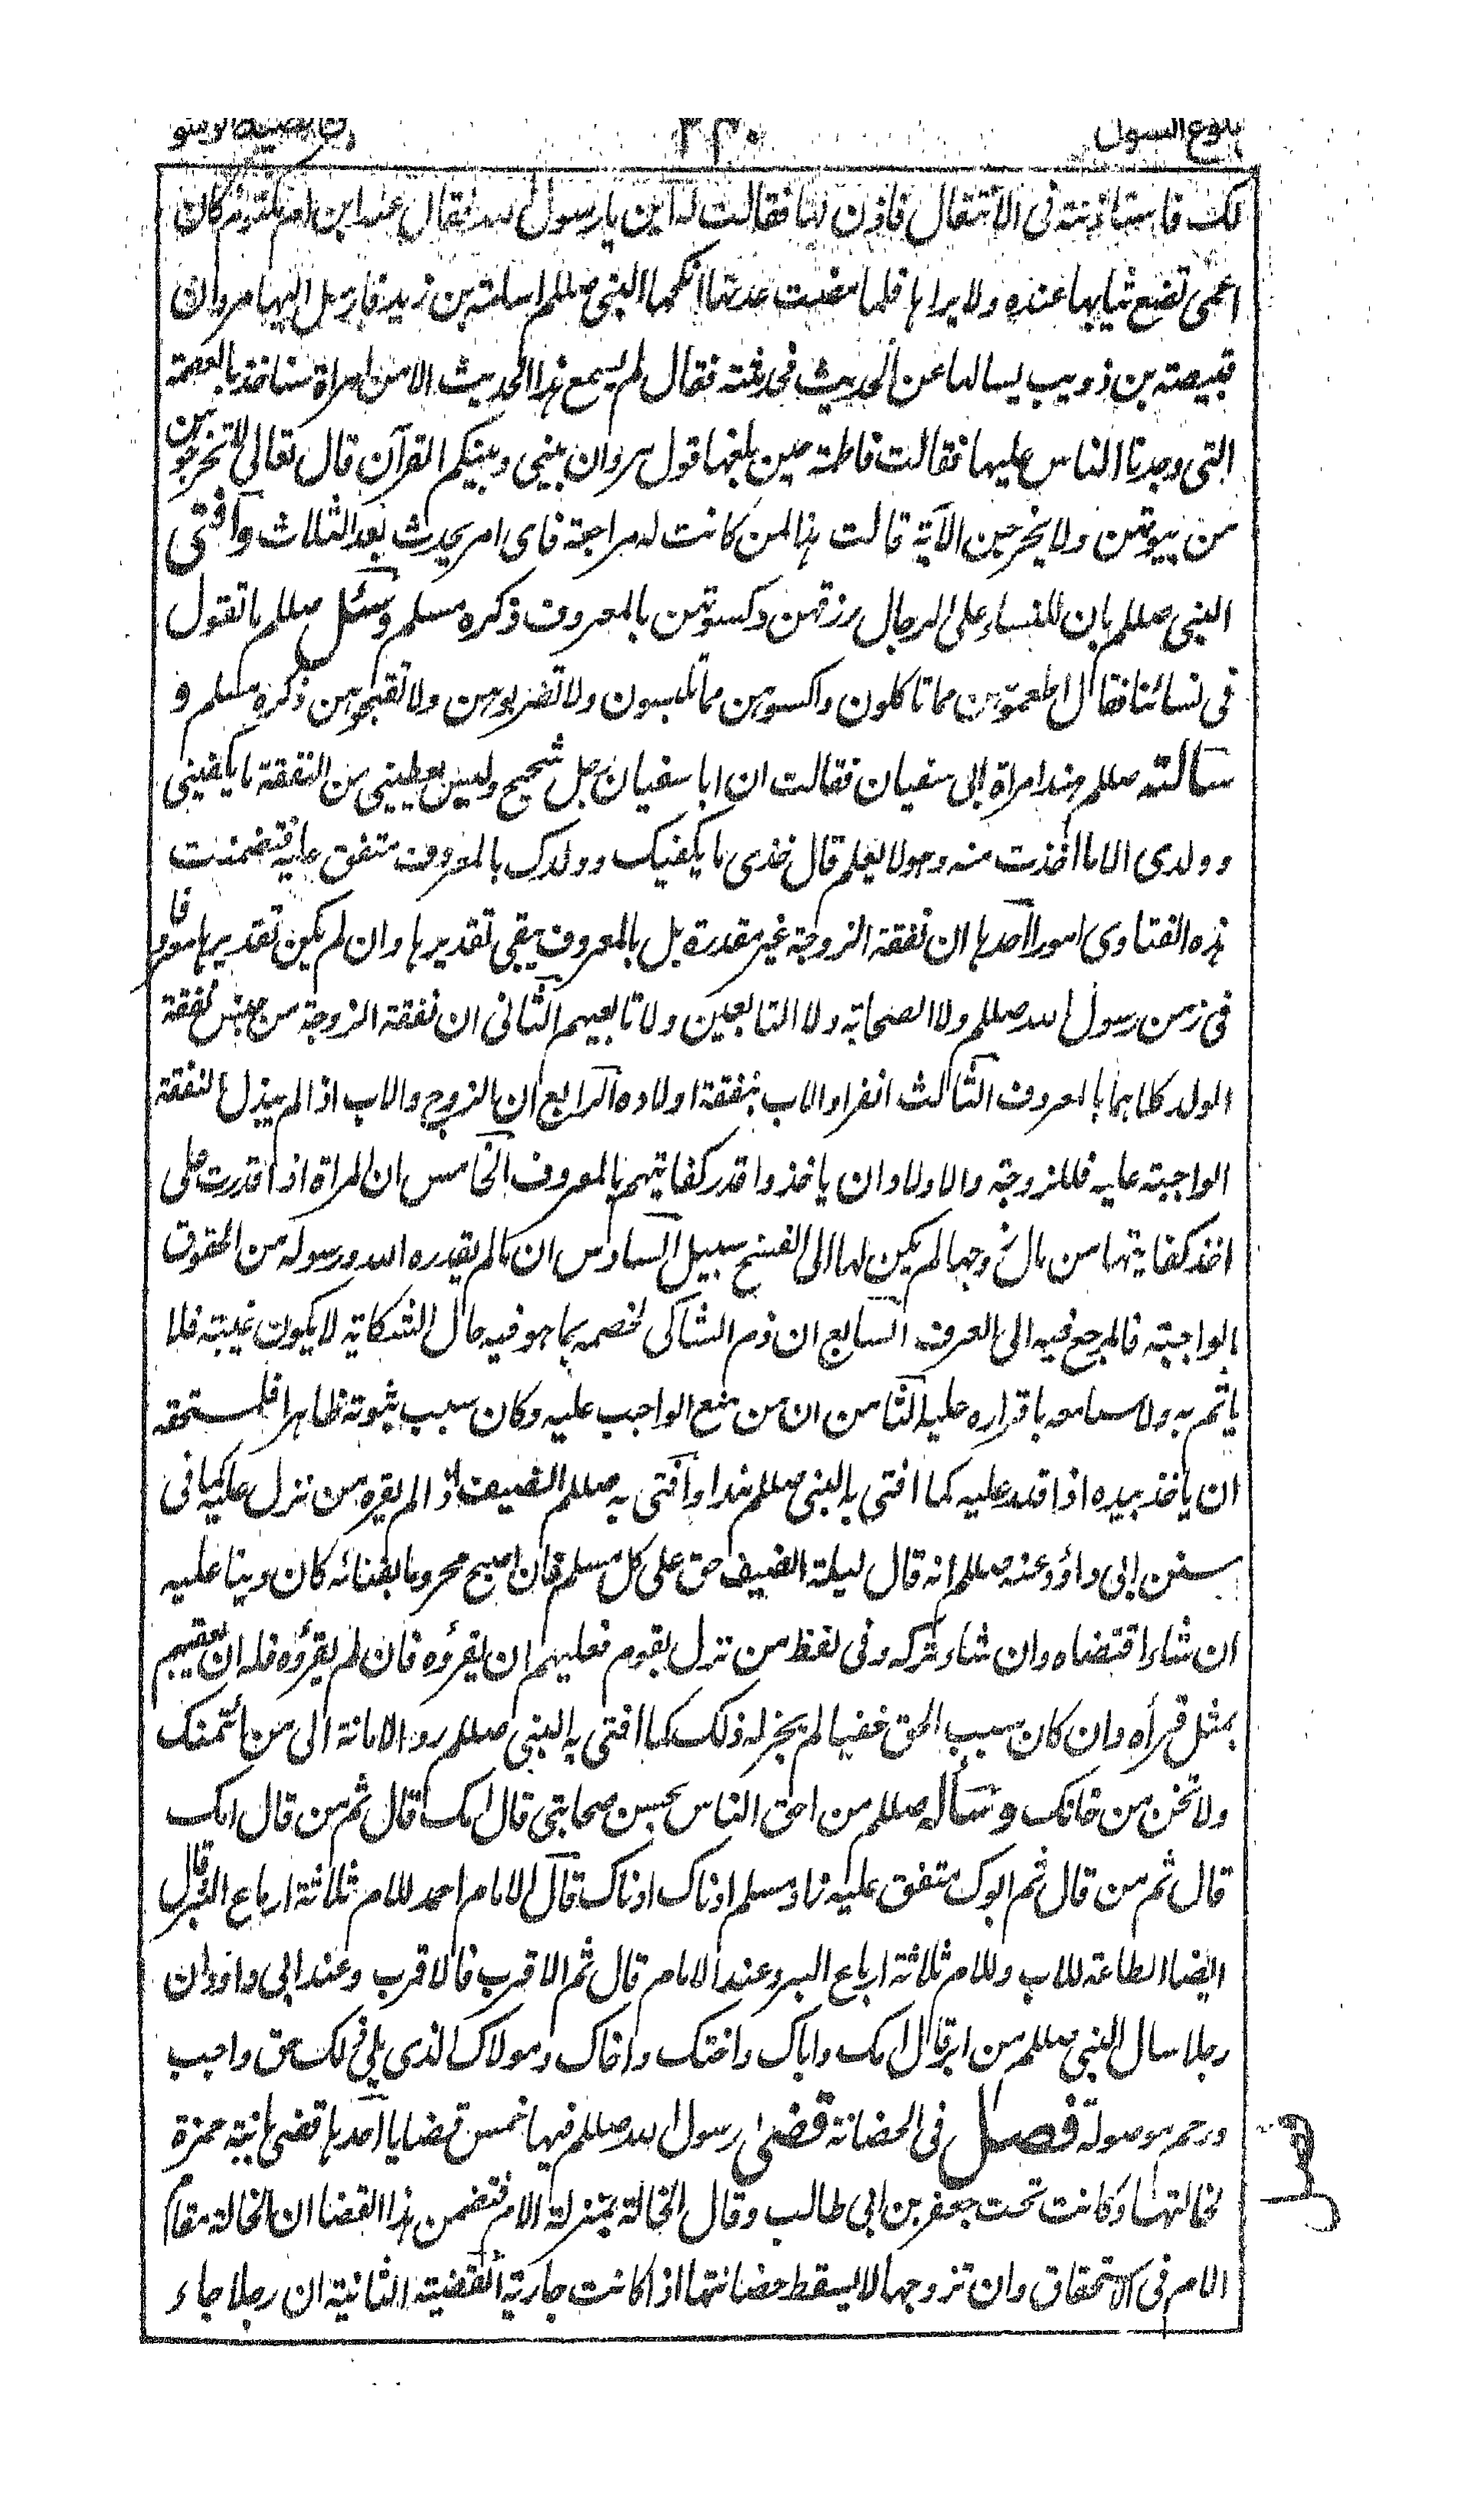 بلوغ السول
لک فاستاذنته فی الانتقال فاذن لها فقالت له این یا رسول الله فقال عند ابن ام مکتوم کان
اعمی تضع ثیابها عنده ولا یراها فلما مضت عدتها انکحها النبی صللم اسامة بن زید فارسل الیها مروان
قبیصته بن ذویب یسالها عن الحدیث فحدثته فقال لم یسمع هذا الحدیث الا من امراة سناخذ بالعصمة
التی وجدنا الناس علیها فقالت فاطمة حین بلغها قول مروان بینی وبینکم القرآن قال تعالی لا تخرجوهن
من بیوتهن ولا یخرجن الآیة قالت هذا لمن کانت له مراجعة فای امر یحدث بعد الثلاث وآفتی
النبی صللم بان للنساء علی الرجال رزقهن وکسوتهن بالمعروف ذکره مسلم وسئل صللم ما تقول
فی نسائنا فقال اطعموهن مما تاکلون واکسوهن مما تلبسون ولا تضربوهن ولا تقبحوهن ذکره مسلم و
سالته صللم هند امراة ابی سفیان فقالت ان ابا سفیان رجل شحیح ولیس یعطینی من النفقة ما یکفینی
وولدی الا ما اخذت منه وهو لا یعلم قال خذی ما یکفیک وولدک بالمعروف متفق علیه فتضمنت
هذه الفتاوی امورا احدها ان نفقة الزوجة غیر مقدرة بل بالمعروف ینفی تقدیرها وان لم یکن تقدیرها معروفا
فی زمن رسول الله صللم ولا الصحابة ولا التابعین ولا تابعیهم الثانی ان نفقة الزوجة من جنس نفقة
الولد کلاهما بالمعروف الثالث انفراد الاب بنفقة اولاده الرابع ان الزوج والاب اذا لم یبذل النفقة
الواجبته علیه فللزوجة والاولاد ان یاخذوا قدر کفایتهم بالمعروف الخامس ان المراة اذا قدرت علی
اخذ کفایتها من مال زوجها لم یکن لها الی الفسخ سبیل السادس ان ما لم یقدره الله ورسوله من الحقوق
الواجبته فالمرجع فیه الی العرف السابع ان ذم الشاکی لخصمه بما هو فیه حال الشکایة لا یکون غیبته فلا
یاثم به ولا سامعه باقراره علیه الثامن ان من منع الواجب علیه وکان سبب ثبوته ظاهرا فلمستحقه
ان یاخذ بیده اذا قدر علیه کما افتی به النبی صللم هندا وآفتی به صللم الضیف اذا لم یقره من نزل علیه کما فی
سنن ابی داؤد عنه صللم انه قال لیلة الضیف حق علی کل مسلم فان اصبح محروما بفنائه کان دینا علیه
ان شاء اقتضاه وان شاء ترکه وفی لفظ من نزل بقوم فعلیهم ان یقرؤه فان لم یقرؤه فله ان یعقبهم
بمثل قرأه وان کان سبب الحق خفیا لم یجز له ذلک کما افتی به النبی صللم رد الامانة الی من ائتمنک
ولا تخن من خانک وسأله صللم من احق الناس بحسن صحابتی قال امک قال ثم من قال امک
قال ثم من قال ثم ابوک متفق علیه زاد مسلم ادناک ادناک قال الامام احمد للام ثلاثة ارباع البر وقال
ایضا الطاعة للاب وللام ثلاثة ارباع البر وعند الامام قال ثم الاقرب فالاقرب وعند ابی داؤد ان
رجلا سال النبی صللم من ابر قال امک واباک واختک واخاک ومولاک الذی یلی ذلک حق واجب
ورحم موصولة فصل فی الحضانة قضی رسول الله صللم فیها خمس قضایا احدها قضی بابنة حمزة
لخالتها وکانت تحت جعفر بن ابی طالب وقال الخالة بمنزلة الام فتضمن هذا القضا ان الخالة مقام
الام فی الاستحقاق وان تزوجها لا یسقط حضانتها اذا کانت جاریة القضیة الثانیة ان رجلا جاء